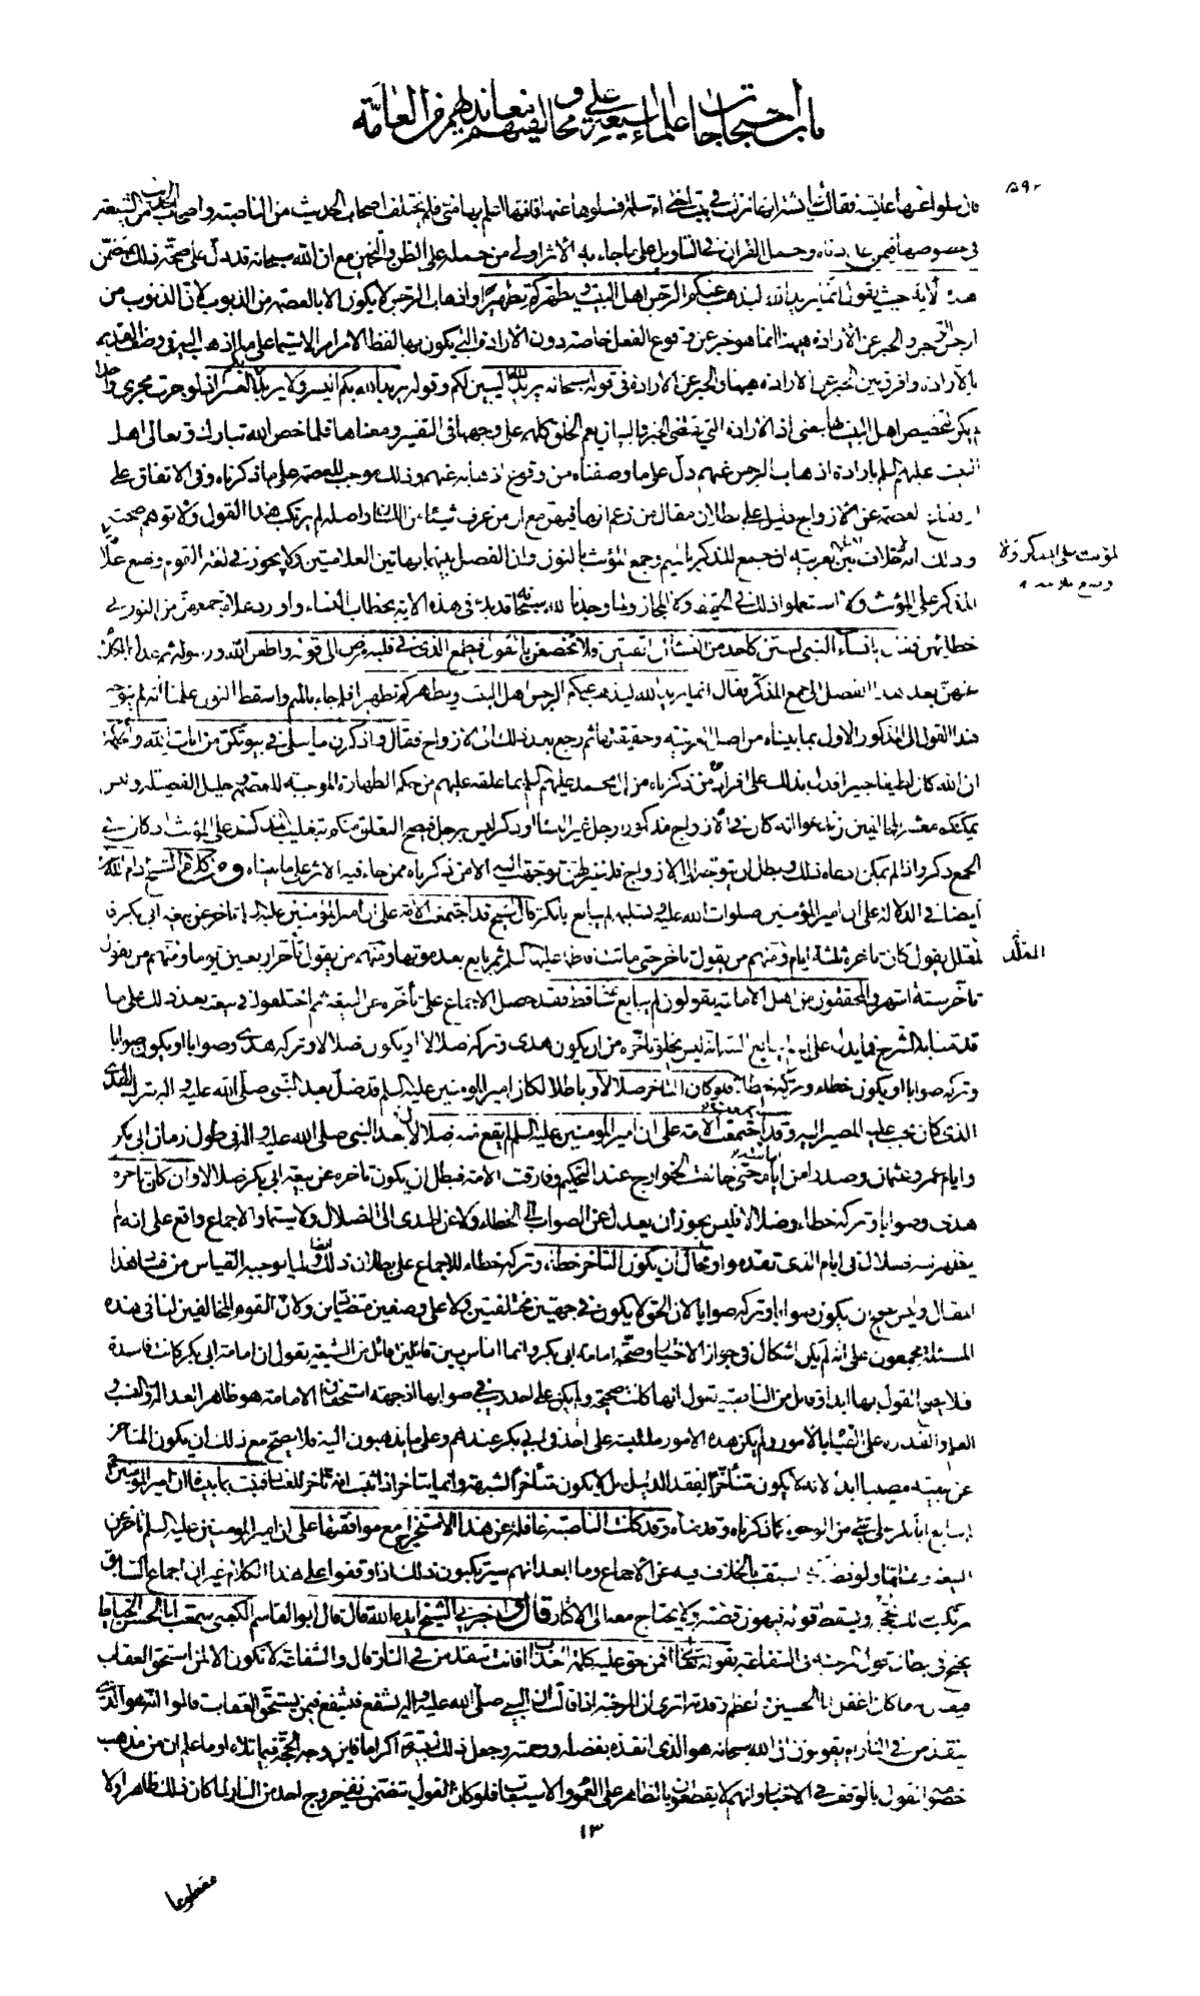 باب احتجاجات علماء الشيعة على مخالفيهم ومعانديهم من العامة
٥٩٢
سلوا عنها عايشة فقالت عايشة انها نزلت في بيت اختي ام سلمة فسلوها عنها فانها اعلم بها مني فلم يختلف اصحاب الحديث من الناصبة واصحاب الحديث من الشيعة
في خصوصها فيمن عددناه وحمل القران في التاويل على ما جاء به الاثر اولى من حمله على الظن والتخمين مع ان الله سبحانه قد دل على صحة ذلك بمتضمن
هذه الاية حيث يقول انما يريد الله ليذهب عنكم الرجس اهل البيت ويطهركم تطهيرا واذهاب الرجس لا يكون الا بالعصمة من الذنوب لان الذنوب من
ارجس الرجس والخبر عن الارادة ههنا انما هو خبر عن وقوع الفعل خاصة دون الارادة التي يكون بها لفظ الامر امرا لا سيما على ما اذهب اليه في وصف القديم
بالارادة وافرق بين الخبر عن الارادة ههنا والخبر عن الارادة في قوله سبحانه يريد الله ليبين لكم وقوله يريد الله بكم اليسر ولا يريد بكم العسر اذ لو جرت مجرى واحدا
لم يكن لتخصيص اهل البيت بها معنى اذ الارادة التي تقتضي الخبر والبيان يعم الخلق كلهم على وجهها في التفسير ومعناها فلما خص الله تبارك وتعالى اهل
البيت عليهم السلم بارادة اذهاب الرجس عنهم دل على ما وصفناه من وقوع اذهابه عنهم وذلك موجب للعصمة على ما ذكرناه وفي الاتفاق على
ارتفاع العصمة عن الازواج دليل على بطلان مقال من زعم انها فيهن مع ان من عرف شيئا من اللسان واصله لم يرتكب هذا القول ولا توهم صحته
وذلك انه لا خلاف بين اهل العربية ان جمع المذكر بالميم وجمع المؤنث بالنون وان الفصل بينهما بهاتين العلامتين ولا يجوز في لغة القوم وضع علامة
المؤنث على المذكر ولا
وضع علامة
المذكر على المؤنث ولا استعملوا ذلك في الحقيقة ولا المجاز ولما وجدنا الله سبحانه قد بدء في هذه الاية بخطاب النساء واورد علامة جمعهن من النون في
خطابهن فقال يا نساء النبي لستن كاحد من النساء ان اتقيتن فلا تخضعن بالقول فيطمع الذي في قلبه مرض الى قوله واطعن الله ورسوله ثم عدل بالكلام
عنهن بعد هذا الفصل الى جمع المذكر فقال انما يريد الله ليذهب عنكم الرجس اهل البيت ويطهركم تطهيرا فلما جاء بالميم واسقط النون علمنا انه لم يتوجه
هذا القول الى المذكور الاول بما بيناه من اصل العربية وحقيقتها ثم رجع بعد ذلك الى الازواج فقال واذكرن ما يتلى في بيوتكن من ايات الله والحكمة
ان الله كان لطيفا خبيرا فدل بذلك على افراد من ذكرناه من ال محمد عليهم السلم بما علقه عليهم من حكم الطهارة الموجبة للعصمة وجليل الفضيلة وليس
يمكنكم معشر المخالفين ان تدعوا انه كان في الازواج مذكور رجل غير النساء او ذكر ليس برجل فيصح التعلق منكم بتغليب المذكر على المؤنث اذ كان في
الجمع ذكر واذا لم يمكن ادعاء ذلك وبطل ان يتوجه الى الازواج فلا غيرهن توجهت اليه الا من ذكرناه ممن جاء فيه الاثر على ما بيناه ومن كلام الشيخ ادام الله
ايضا في الدلالة على ان امير المؤمنين صلوات الله عليه وسلم لم يبايع ابا بكر قال الشيخ قد اجتمعت الامة على ان امير المؤمنين عليه السلم تاخر عن بيعة ابي بكر فا
المقلل
لمقلل يقول كان تاخره ثلثة ايام ومنهم من يقول تاخر حتى ماتت فاطمة عليها السلم ثم بايع بعد موتها ومنهم من يقول تاخر اربعين يوما ومنهم من يقول
تاخر ستة اشهر والمحققون من اهل الامامة يقولون لم يبايع ساعة قط فقد حصل الاجماع على تاخره عن البيعة ثم اختلفوا في بيعته بعد ذلك على ما
قدمنا به الشرح فمما يدل على انه لم يبايع البتة انه ليس يخلو تاخره من ان يكون هدى وتركه ضلالا او يكون ضلالا وتركه هدى وصوابا او يكون صوابا
وتركه صوابا او يكون خطاء وتركه خطاء فلو كان التاخر ضلالا وباطلا لكان امير المؤمنين عليه السلم قد ضل بعد النبي صلى الله عليه واله بترك الهدى
الذي كان يجب عليه المصير اليه وقد اجتمعت الامة على ان امير المؤمنين عليه السلم لم يقع منه ضلال بعد النبي صلى الله عليه واله في طول زمان ابي بكر
وايام عمر وعثمان وصدرا من ايامه حتى خالفت الخوارج عند التحكيم وفارقت الامة فبطل ان يكون تاخره عن بيعة ابي بكر ضلالا وان كان تاخره
هدى وصوابا وتركه خطاء وضلالا فليس يجوز ان يعدل عن الصواب الى الخطاء ولا عن الهدى الى الضلال ولا سيما والاجماع واقع على انه لم
يظهر منه ضلال في ايام الذي تقدموا ومحال ان يكون التاخر خطاء وتركه خطاء للاجماع على بطلان ذلك ايضا ولما يوجبه القياس من فساد هذا
المقال وليس يصح ان يكون صوابا وتركه صوابا لان الحق لا يكون في جهتين مختلفتين ولا على وصفين متضادين ولان القوم المخالفين لنا في هذه
المسئلة مجمعون على انه لم يكن اشكال في جواز الاختيار وصحة امامة ابي بكر وانما الناس بين قائلين قائل من الشيعة يقول ان امامة ابي بكر كانت فاسدة
فلا يصح القول بها ابدا وقائل من الناصبة يقول انها كانت صحيحة ولم يكن على احد ريب في صوابها اذ جهة استحقاق الامامة هو ظاهر العدالة والنسب و
العلم والقدرة على القيام بالامور ولم يكن هذه الامور ملتبسة على احد في ابي بكر عندهم وعلى ما يذهبون اليه فلا يصح مع ذلك ان يكون المتاخر
عن بيعته مصيبا ابدا لانه لا يكون متاخرا لفقد الدليل بل لا يكون متاخرا لشبهة وانما يتاخر اذا ثبت انه تاخر للعناد فثبت بما بيناه ان امير المؤمنين
لم يبايع ابا بكر على شئ من الوجوه كما ذكرناه وقدمناه وقد كانت الناصبة غافلة عن هذا الاستخراج مع موافقتها على ان امير المؤمنين عليه السلم تاخر عن
البيعة وقتا ما ولو فطنت له لسبقت بالخلاف فيه عن الاجماع وما ابعد انهم سيرتكبون ذلك اذا وقفوا على هذا الكلام غير ان اجماع السابق
لمرتكب ذلك يحجه ويسقط قوله فيهون قصته ولا يحتاج معه الى الاكثار قال واخبرني الشيخ ايده الله قال قال ابو القاسم الكعبي سمعت ابا الحسين الخياط
يحتج في بطلان قول المرجئة في الشفاعة بقوله تعالى افمن حق عليه كلمة العذاب افانت تنقذ من في النار قال والشفاعة لا تكون الا لمن استحق العقاب
فيقال له ما كان اغفل ابا الحسين واعظم رقدته اترى ان المرجئة اذا قالت ان النبي صلى الله عليه واله يشفع فيشفع فيمن يستحق العقاب قالوا انه هو الذي
ينقذ من في النار ام يقولون ان الله سبحانه هو الذي انقذه بفضله ورحمته وجعل ذلك اكراما لنبيه فاين وجه الحجة فيما تلاه اوما علم ان من مذهب
خصومه القول بالوقف في الاخبار وانهم لا يقطعون بالظاهر على العموم والاستيعاب فلو كان القول يتضمن نفي خروج احد من النار لما كان ذلك ظاهرا ولا
١٣
مقطوعا